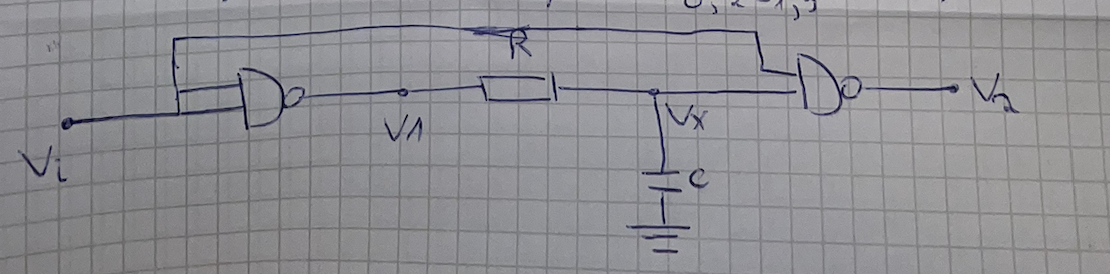 R
Vi
V1
Vx
V2
C